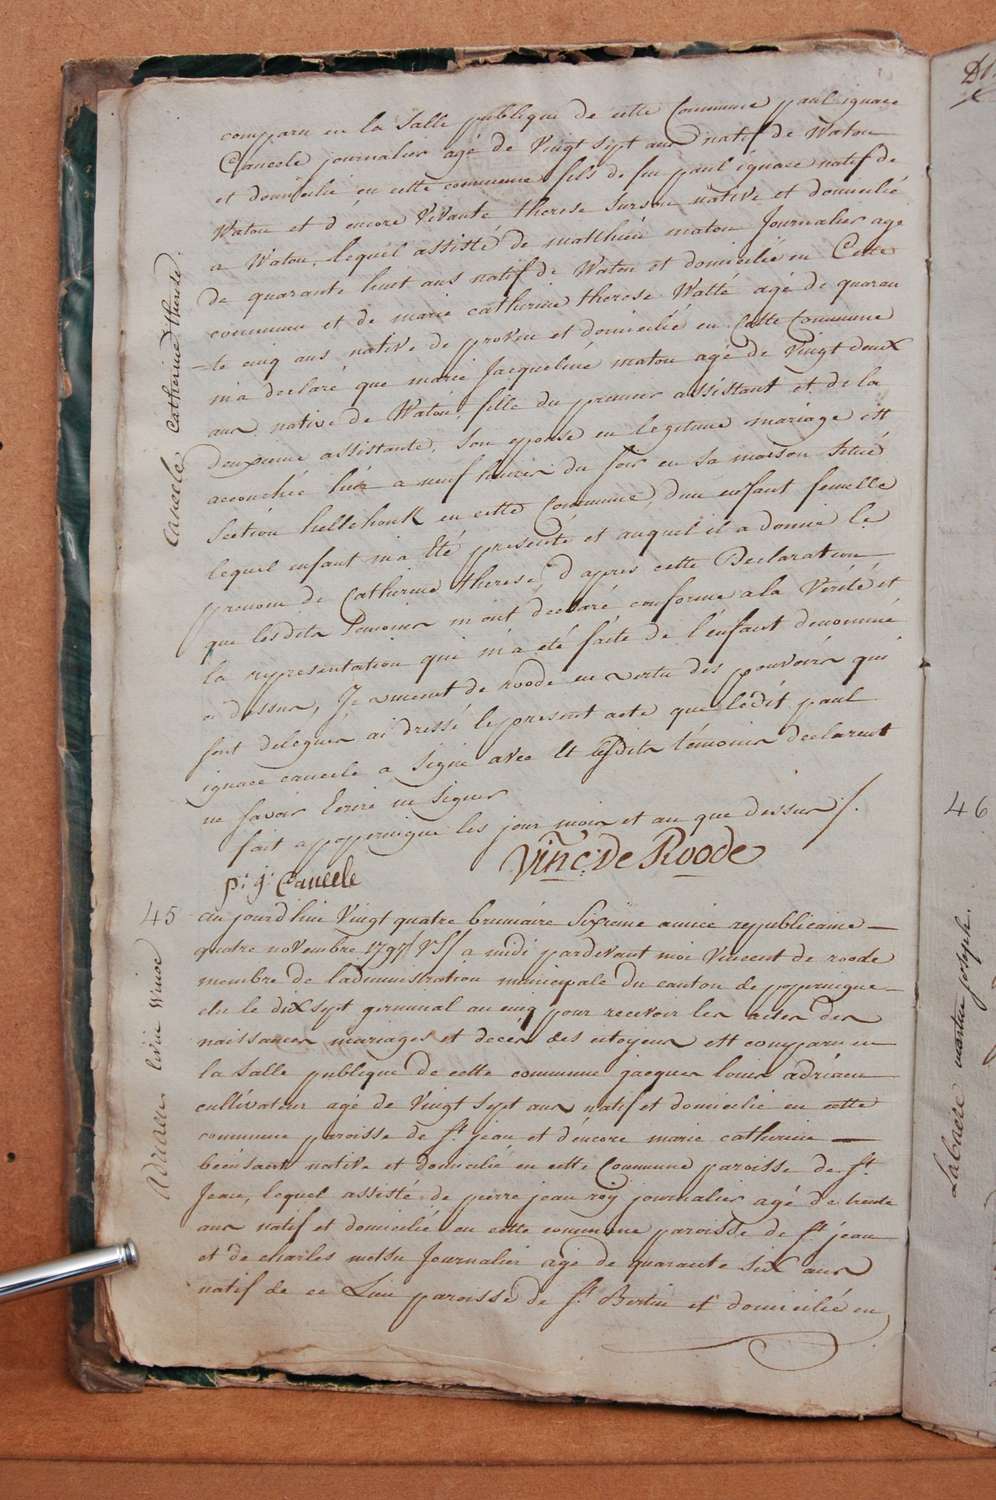 comparu en la Salle publique de cette Commune paul ignace
Caneele journalier agé de Vingt sept ans natif de Watou
et domicilié en cette commune fils de feu paul ignace natif de
Watou et d'encore Vivante therese natíve et domicilié
a Watou, lequel assisté de matthieu matou Journalier agé
de quarante huit ans natif de Watou et domicilié en Cette
commune et de marie catherine therese Watté agé de quaran
=te cinq ans native de proven et domicilié en Cette Commune
m'a declaré que marie Jacqueline matou agé de Vingt deux
ans native de Watou, fille du premier assistant et de la
deuxieme assistante, Son epouse en legitime mariage est
accouchée hier a neuf heures du soir en sa maison situé
Section hellehouk en cette Commune, d'un enfant femelle
lequel enfant m'a Eté presenté et auquel il a donné le
prenom de Catherine therese, d'apres cette Declaration
que lesdits Temoins m'ont declaré conforme a la Verité et
la representation qui m'a été faite de l'enfant denommé
ci dessus, Je vincent de roode en vertu des pouvoirs qui
sont delegués ai dressé le present acte que ledit paul
ignace caneele a Signé avec et lesdits témoins declarent
ne savoir Ecrire ni Signer
fait a poperingue les jour mois et an que dessus /.
p: j: Caneele
Vinc: De Roode
Caneele Catherine therese.
45
Adriaen livin Winoc
aujourd'hui Vingt quatre brumaire Sixieme année republicaine —
quatre novembre 1797 /VS/ a midi pardevant moi Vincent de roode
membre de l'administration municipale du canton de poperingue —
elu le dix sept germinal an cinq pour recevoir les actes des
naissances mariages et deces des citoyens est comparu en
la Salle publique de cette commune jacques louis adriaen
cultivateur agé de Vingt sept ans natif et domicilié en cette
commune paroisse de st. jean et d'encore marie catherine —
native et domicilié en cette Commune paroisse de st.
Jean, lequel assisté de pierre jean roÿ journalier agé de trente
ans natif et domicilié en cette commune paroisse de st jean
et de charles Journalier agé de quarante six ans
natif de ce Lieu paroisse de st. Bertin et domicilié en
46
Labaere martin joseph.